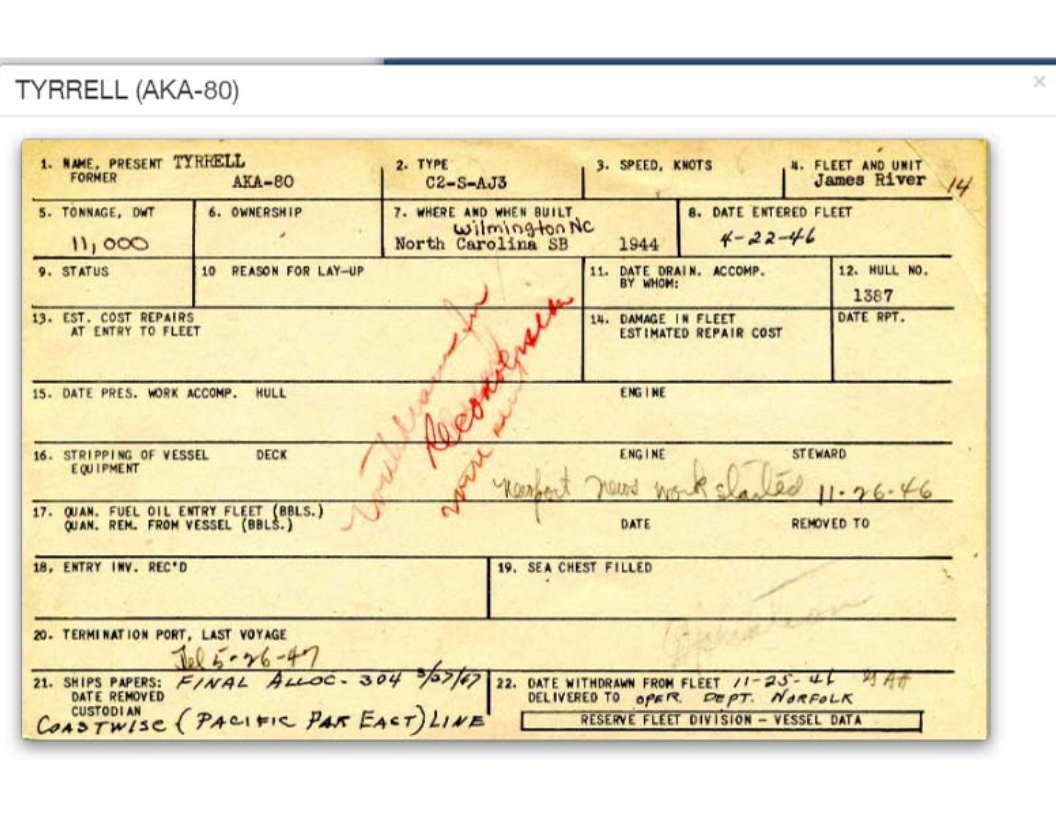 TYRRELL (AKA-80)
×
1. NAME, PRESENT TYRRELL
FORMER AKA-80
2. TYPE
C2-S-AJ3
3. SPEED, KNOTS
4. FLEET AND UNIT
James River 14
5. TONNAGE, DWT
11,000
6. OWNERSHIP
7. WHERE AND WHEN BUILT
Wilmington NC
North Carolina SB 1944
8. DATE ENTERED FLEET
4-22-46
9. STATUS
10 REASON FOR LAY-UP
11. DATE DRAIN. ACCOMP.
BY WHOM:
12. HULL NO.
1387
13. EST. COST REPAIRS
AT ENTRY TO FLEET
14. DAMAGE IN FLEET
ESTIMATED REPAIR COST
DATE RPT.
15. DATE PRES. WORK ACCOMP. HULL ENGINE
16. STRIPPING OF VESSEL DECK ENGINE STEWARD
EQUIPMENT
Newport News work started 11-26-46
17. QUAN. FUEL OIL ENTRY FLEET (BBLS.)
QUAN. REM. FROM VESSEL (BBLS.) DATE REMOVED TO
18. ENTRY INV. REC'D
19. SEA CHEST FILLED
20. TERMINATION PORT, LAST VOYAGE
5-26-47
21. SHIPS PAPERS: FINAL ALLOC- 304
DATE REMOVED
CUSTODIAN
COASTWISE (PACIFIC FAR EAST) LINE
22. DATE WITHDRAWN FROM FLEET 11-25-46
DELIVERED TO OPER. DEPT. NORFOLK
RESERVE FLEET DIVISION - VESSEL DATA